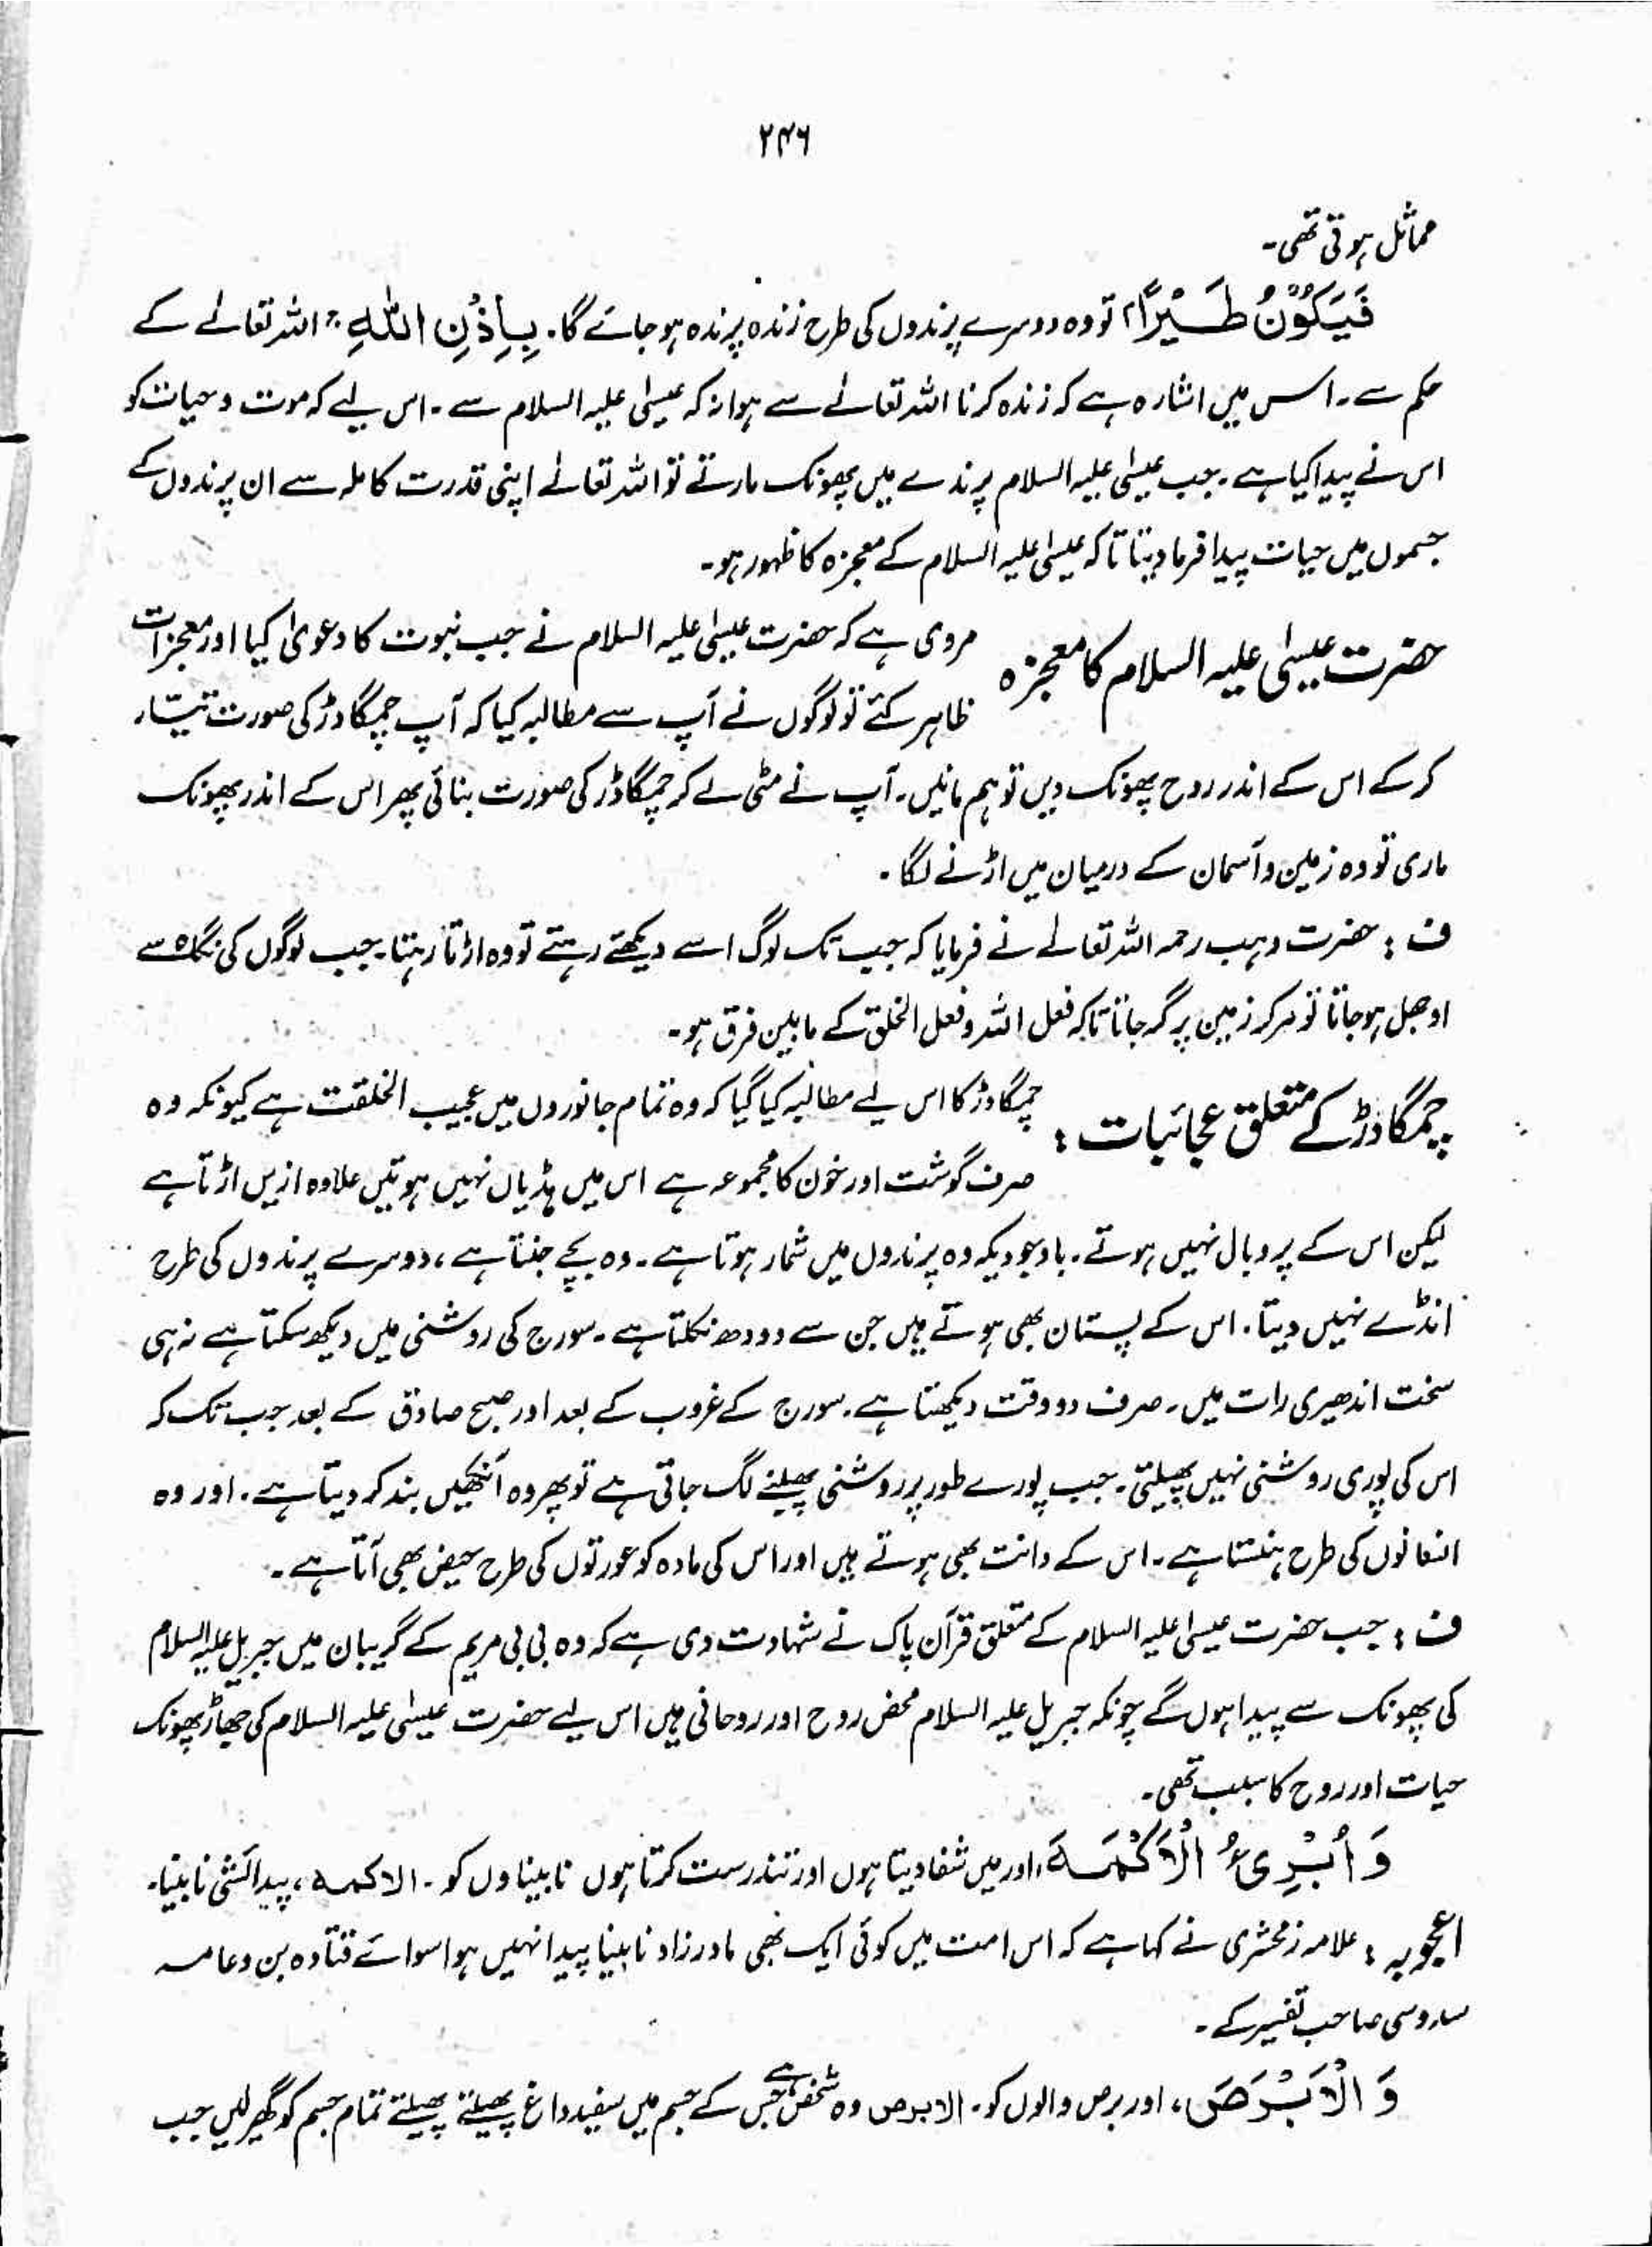 ۲۴۶
مماثل ہوتی تھی۔
فَیَکُوْنُ طَیْرًا، تو وہ دوسرے پرندوں کی طرح زندہ پرندہ ہو جائے گا۔ بِاِذْنِ اللّٰہِ ج اللہ تعالےٰ کے
حکم سے۔ اس میں اشارہ ہے کہ زندہ کرنا اللہ تعالےٰ سے ہوا نہ کہ عیسیٰ علیہ السلام سے۔ اس لیے کہ موت و حیات کو
اس نے پیدا کیا ہے۔ جب عیسیٰ علیہ السلام پرندے میں پھونک مارتے تو اللہ تعالےٰ اپنی قدرت کاملہ سے ان پرندوں کے
جسموں میں حیات پیدا فرما دیتا تاکہ عیسیٰ علیہ السلام کے معجزہ کا ظہور ہو۔
حضرت عیسیٰ علیہ السلام کا معجزہ مروی ہے کہ حضرت عیسیٰ علیہ السلام نے جب نبوت کا دعویٰ کیا اور معجزات
ظاہر کئے تو لوگوں نے آپ سے مطالبہ کیا کہ آپ چمگادڑ کی صورت تیّار
کر کے اس کے اندر روح پھونک دیں تو ہم مانیں۔ آپ نے مٹی لے کر چمگادڑ کی صورت بنائی پھر اس کے اندر پھونک
ماری تو وہ زمین و آسمان کے درمیان میں اڑنے لگا۔
ف : حضرت وہب رحمہ اللہ تعالےٰ نے فرمایا کہ جب تک لوگ اسے دیکھتے رہتے تو وہ اڑتا رہتا۔ جب لوگوں کی نگاہ سے
اوجھل ہو جاتا تو مر کر زمین پر گر جاتا تاکہ فعل اللہ و فعل الخلق کے مابین فرق ہو۔
چمگادڑ کے متعلق عجائبات : چمگادڑ کا اس لیے مطالبہ کیا گیا کہ وہ تمام جانوروں میں عجیب الخلقت ہے کیونکہ وہ
صرف گوشت اور خون کا مجموعہ ہے اس میں ہڈیاں نہیں ہوتیں علاوہ ازیں اڑتا ہے
لیکن اس کے پر و بال نہیں ہوتے۔ باوجودیکہ وہ پرندوں میں شمار ہوتا ہے۔ وہ بچے جنتا ہے، دوسرے پرندوں کی طرح
انڈے نہیں دیتا۔ اس کے پستان بھی ہوتے ہیں جن سے دودھ نکلتا ہے۔ سورج کی روشنی میں دیکھ سکتا ہے نہ ہی
سخت اندھیری رات میں۔ صرف دو وقت دیکھتا ہے۔ سورج کے غروب کے بعد اور صبح صادق کے بعد جب تک کہ
اس کی پوری روشنی نہیں پھیلتی۔ جب پورے طور پر روشنی پھیلنے لگ جاتی ہے تو پھر وہ آنکھیں بند کر دیتا ہے۔ اور وہ
انسانوں کی طرح ہنستا ہے۔ اس کے دانت بھی ہوتے ہیں اور اس کی مادہ کو عورتوں کی طرح حیض بھی آتا ہے۔
ف : جب حضرت عیسیٰ علیہ السلام کے متعلق قرآن پاک نے شہادت دی ہے کہ وہ بی بی مریم کے گریبان میں جبریل علیہ السلام
کی پھونک سے پیدا ہوں گے چونکہ جبریل علیہ السلام محض روح اور روحانی ہیں اس لیے حضرت عیسٰی علیہ السلام کی جھاڑ پھونک
حیات اور روح کا سبب تھی۔
وَ اُبْرِیُٔ الْاَکْمَہَ، اور میں شفا دیتا ہوں اور تندرست کرتا ہوں نابیناوں کو۔ الاکمہ، پیدائشی نابینا۔
اعجوبہ : علامہ زمخشری نے کہا ہے کہ اس امت میں کوئی ایک بھی مادر زاد نابینا پیدا نہیں ہوا سوائے قتادہ بن دعامہ
سدوسی صاحب تفسیر کے۔
وَ الْاَبْرَصَ، اور برص والوں کو۔ الابرص وہ شخص ہے جس کے جسم میں سفید داغ پھیلتے پھیلتے تمام جسم کو گھیر لیں جب